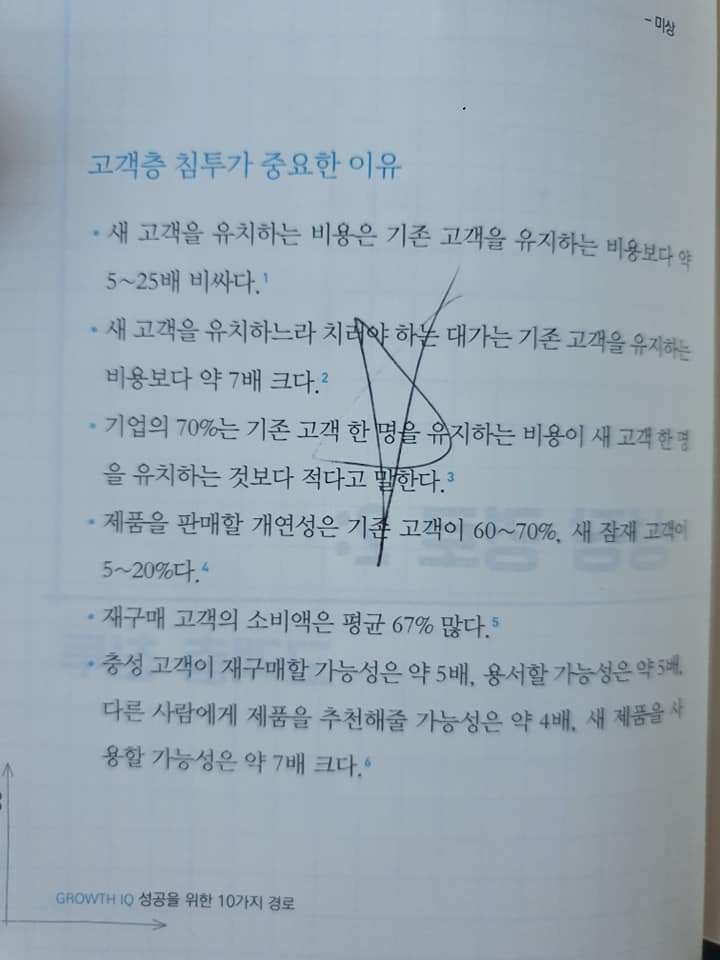 - 미상
고객층 침투가 중요한 이유
• 새 고객을 유치하는 비용은 기존 고객을 유지하는 비용보다 약
5~25배 비싸다.1
• 새 고객을 유치하느라 치러야 하는 대가는 기존 고객을 유지하는
비용보다 약 7배 크다.2
• 기업의 70%는 기존 고객 한 명을 유지하는 비용이 새 고객 한 명
을 유치하는 것보다 적다고 말한다.3
• 제품을 판매할 개연성은 기존 고객이 60~70%, 새 잠재 고객이
5~20%다.4
• 재구매 고객의 소비액은 평균 67% 많다.5
• 충성 고객이 재구매할 가능성은 약 5배, 용서할 가능성은 약 5배,
다른 사람에게 제품을 추천해줄 가능성은 약 4배, 새 제품을 사
용할 가능성은 약 7배 크다.6
GROWTH IQ 성공을 위한 10가지 경로